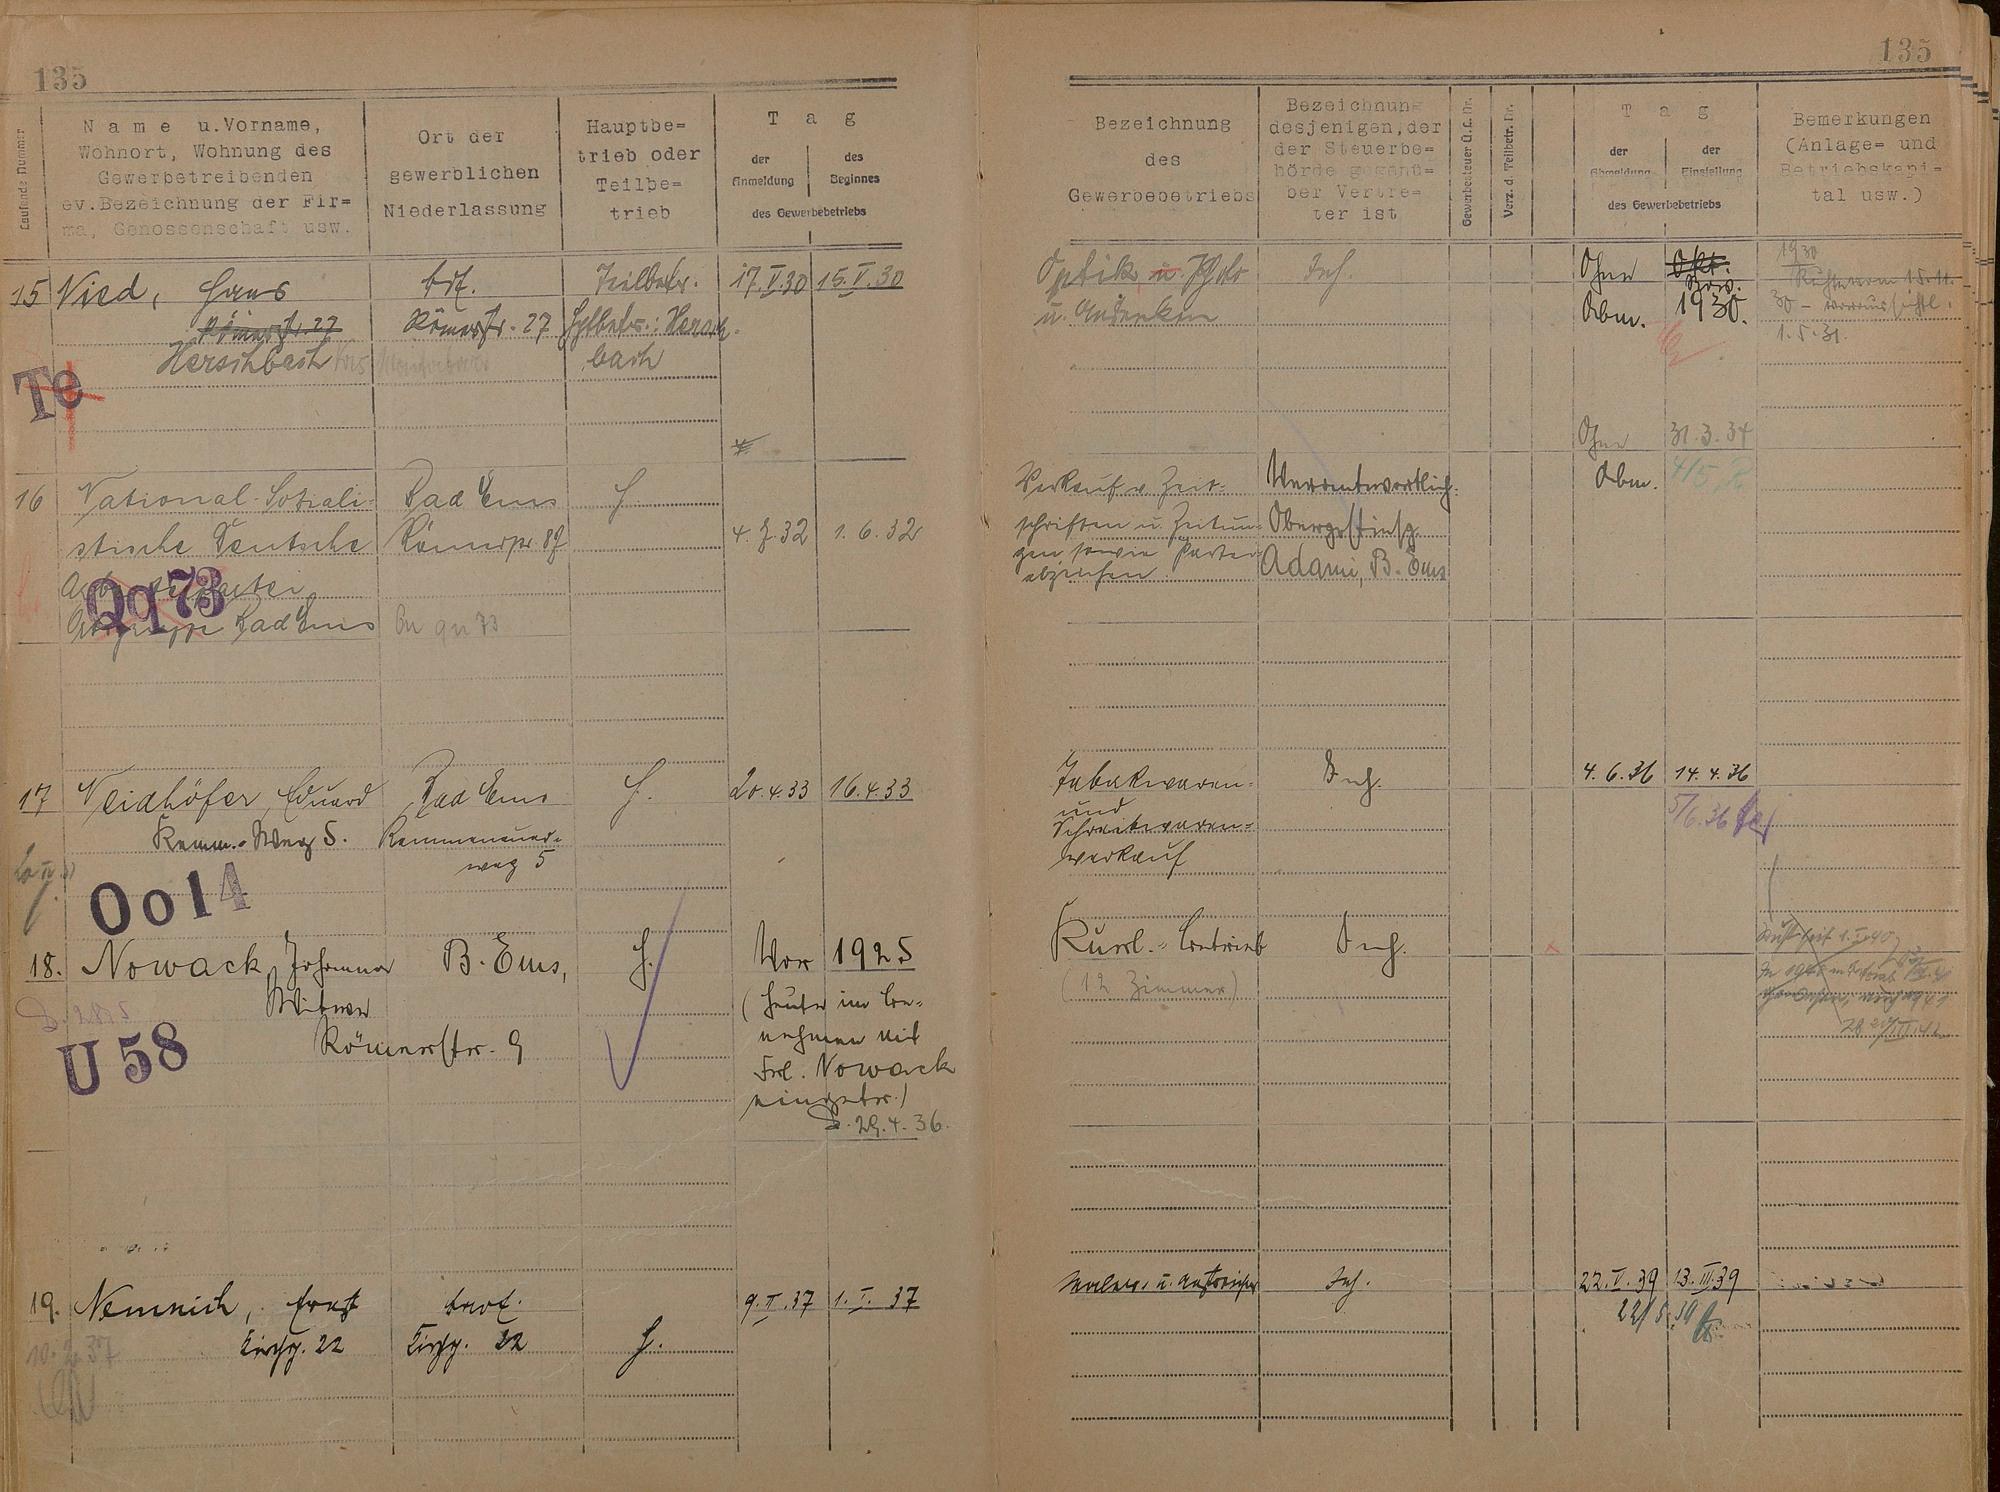 135
Laufende Nummer
Name u.Vorname,
Wohnort, Wohnung des
Gewerbetreibenden
ev.Bezeichnung der Fir=
ma, Genossenschaft usw.
Ort der
gewerblichen
Niederlassung
Hauptbe=
trieb oder
Teilbe=
trieb
Tag
der
Anmeldung
des
Beginnes
des Gewerbebetriebs
15 Nied, Hans
Römerstr. 27
Herschbach
Te
Römerstr. 27
Teilbetr.
Hptbetr.: Hersch
bach
17.V.30 15.V.30
16 National-Soziali-
stische Deutsche
Ortsgruppe Bad Ems
Qq73
Bad Ems
Römerstr. 87
H
4.7.32 1.6.32
17 Neidhöfer, Eduard
Kemm.-Weg 5.
Bad Ems
Kemmenauer-
weg 5
H.
20.4.33 16.4.33
Oo14
18. Nowack, Johanna
Witwe
Römerstr. 9
U58
B. Ems,
H.
Vor 1925
(heute im Be-
nehmen mit
Frl. Nowack
eingetr.)
29.4.36.
19. Nemnich, Ernst
Kirchg. 22
10.2.37
Kirchg. 22
H.
9.II.37 1.I.37
135
Bezeichnung
des
Gewerbebetriebs
Bezeichnung
desjenigen,der
der Steuerbe=
hörde gegenü=
ber Vertre=
ter ist
Gewerbesteuer Ü.L.Nr.
Verz. d. Teilbetr. Nr.
Tag
der
Abmeldung
der
Einstellung
des Gewerbebetriebs
Bemerkungen
(Anlage= und
Betriebskapi=
tal usw.)
Optik u. Photo
u. Andenken
Inh.
Ohne
Abm.
Okt.
Nov.
1930.
1930
1.5.31.
Verkauf v. Zeit-
schriften u. Zeitun-
gen sowie Partei
abzeichen.
Verantwortlich:
Adami, B. Ems
Ohne
Abm.
31.3.34
4/5
Tabakwaren-
und
Schreibwaren-
verkauf
Inh.
4.6.36 14.4.36
5/6.36
Kurl.-Betrieb
(12 Zimmer)
Inh.
Maler- u. Anstreicher
Inh.
22.V.39 13.III.39
22/5.39